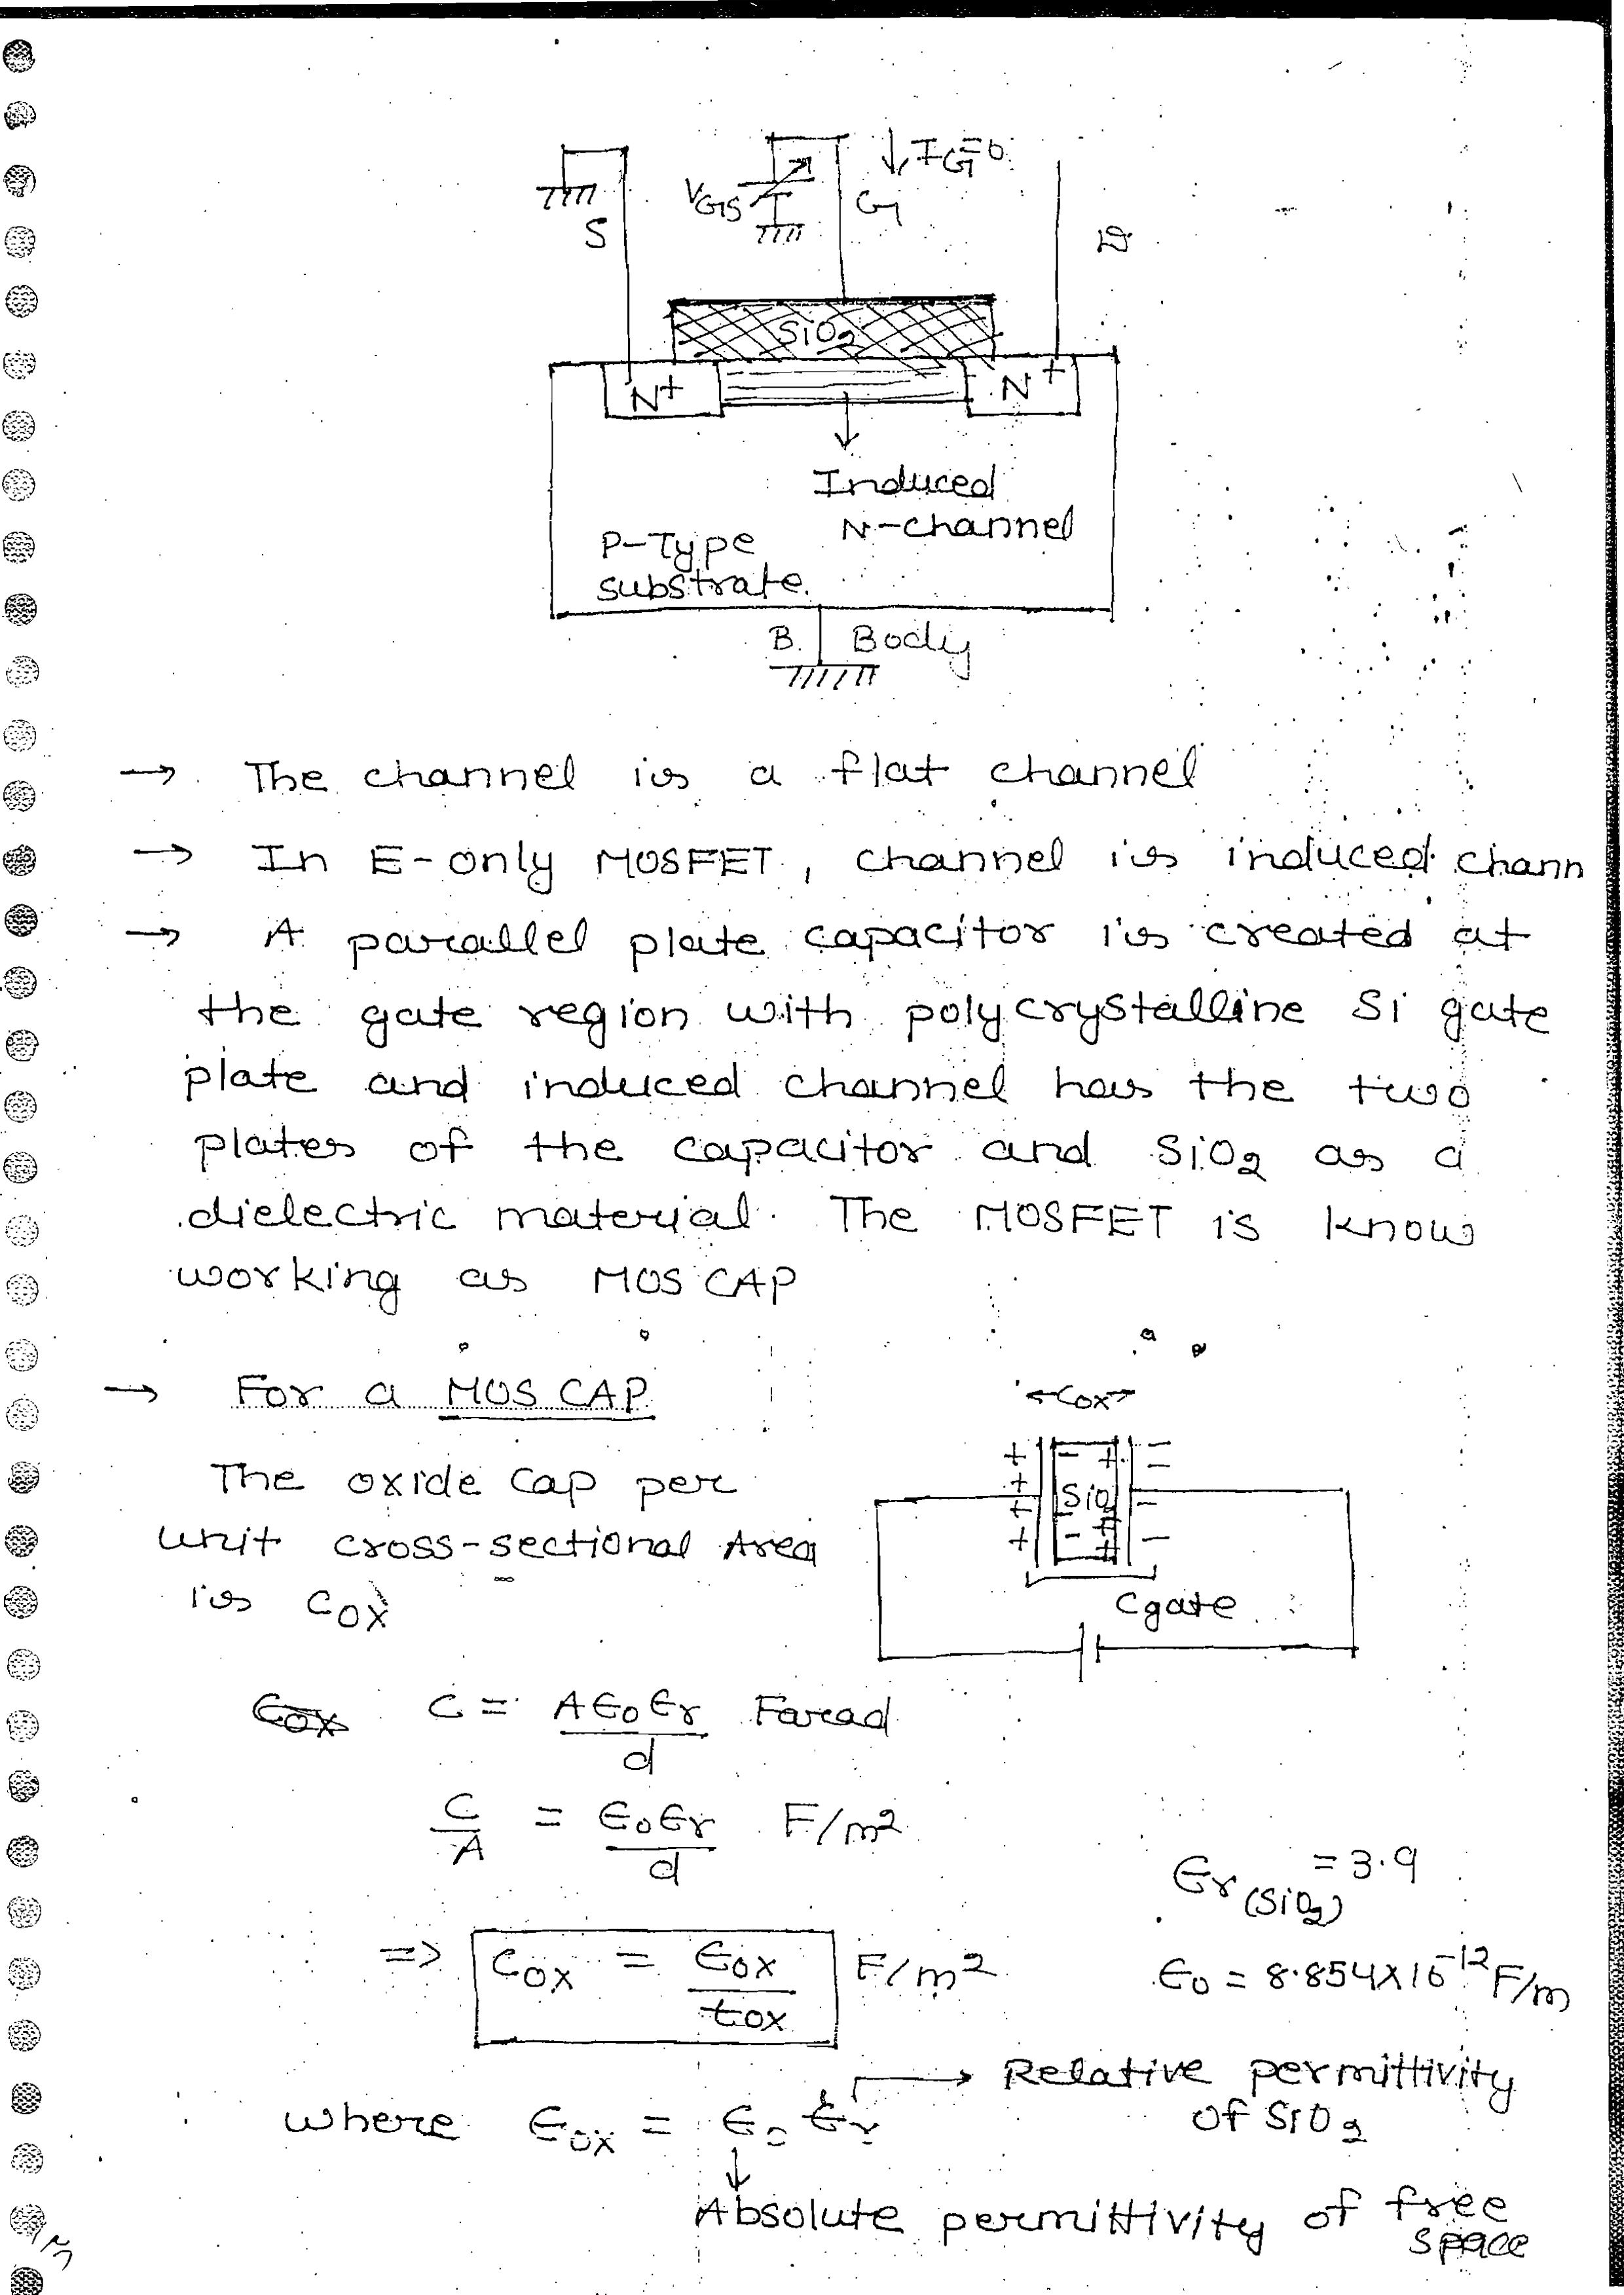 ↓ IG=0
VGS
G
S
D
SiO2
N+
N+
Induced
N-channel
P-Type
substrate.
B. Body
→ The channel is a flat channel
→ In E-only MOSFET, channel is induced chann
→ A parallel plate capacitor is created at
the gate region with polycrystalline Si gate
plate and induced channel has the two
plates of the capacitor and SiO2 as a
dielectric material. The MOSFET is know
working as MOS CAP
→ For a MOS CAP
←Cox→
+ - + -
SiO2
The oxide cap per
unit cross-sectional Area
is Cox
Cgate
C = Aε0εr / d Farad
C/A = ε0εr / d F/m2
εr(SiO2) = 3.9
=> Cox = εox / tox F/m2
ε0 = 8.854×10^-12 F/m
where εox = ε0 εr → Relative permittivity
of SiO2
↓
Absolute permittivity of free
space